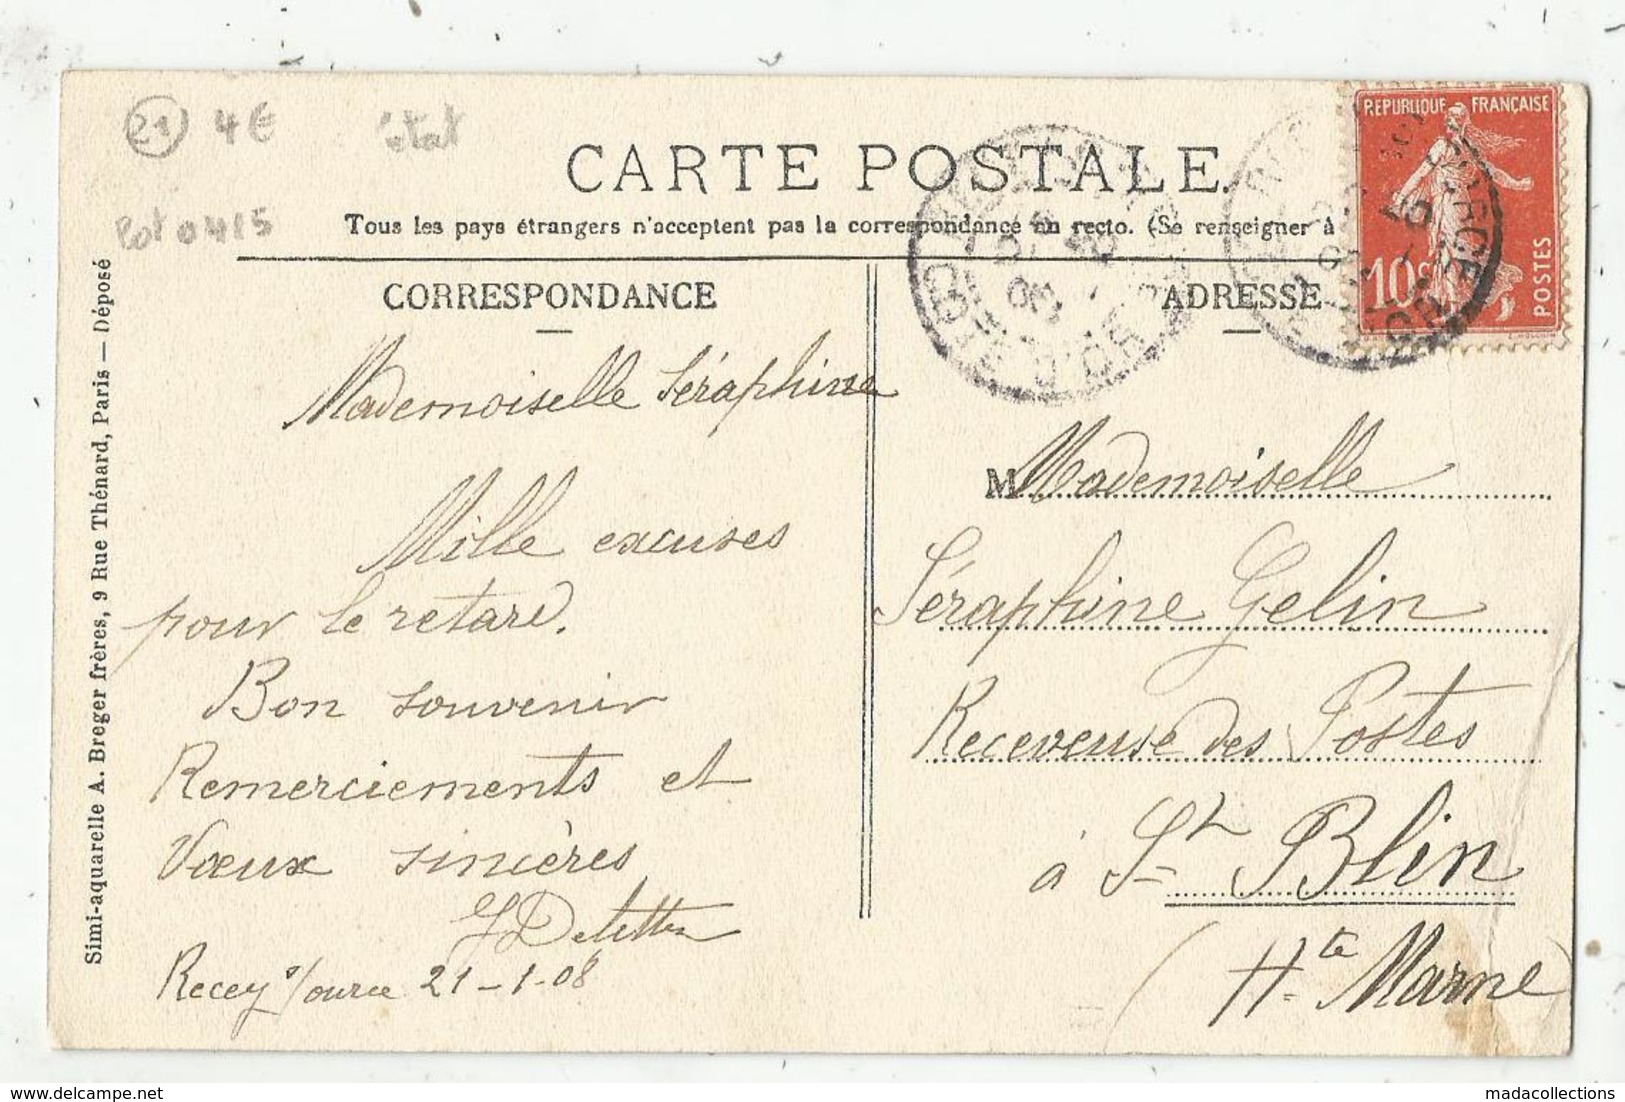 21 4€ état
CARTE POSTALE.
Tous les pays étrangers n'acceptent pas la correspondance au recto. (Se renseigner à
REPUBLIQUE FRANÇAISE
10c
POSTES
CORRESPONDANCE
ADRESSE
Simi-aquarelle A. Breger frères, 9 Rue Thénard, Paris — Déposé
Mademoiselle Séraphine
Mille excuses
pour le retard.
Bon souvenir
Remerciements et
Vœux sincères
Recey s/ource 21-1-08
M Mademoiselle
Séraphine Gelin
Receveuse des Postes
à St Blin
(Hte Marne)
www.madacollections.com